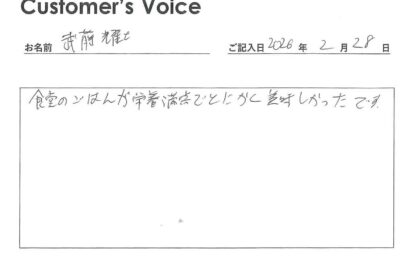 Customer's Voice
お名前 武前 耀士 ご記入日 2026 年 2 月 28 日
食堂のごはんが栄養満点でとにかく美味しかったです